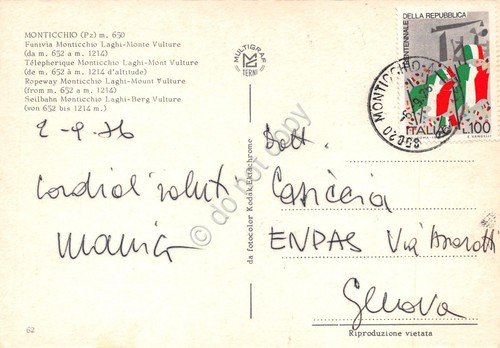 MONTICCHIO (Pz) m. 650
Funivia Monticchio Laghi-Monte Vulture
(da m. 652 a m. 1214)
Télepherique Monticchio Laghi-Mont Vulture
(de m. 652 à m. 1214 d'altitude)
Ropeway Monticchio Laghi-Mount Vulture
(from m. 652 a m. 1214)
Seilbahn Monticchio Laghi-Berg Vulture
(von 652 bis 1214 m.)
2-9-76
Cordiali saluti
62
MULTIGRAF
TERNI
da fotocolor Kodak Ektachrome
TRENTENNALE DELLA REPUBBLICA
ITALIA L.100
MONTICCHIO
Dott.
ENDAS Via
Genova
Riproduzione vietata
do not copy